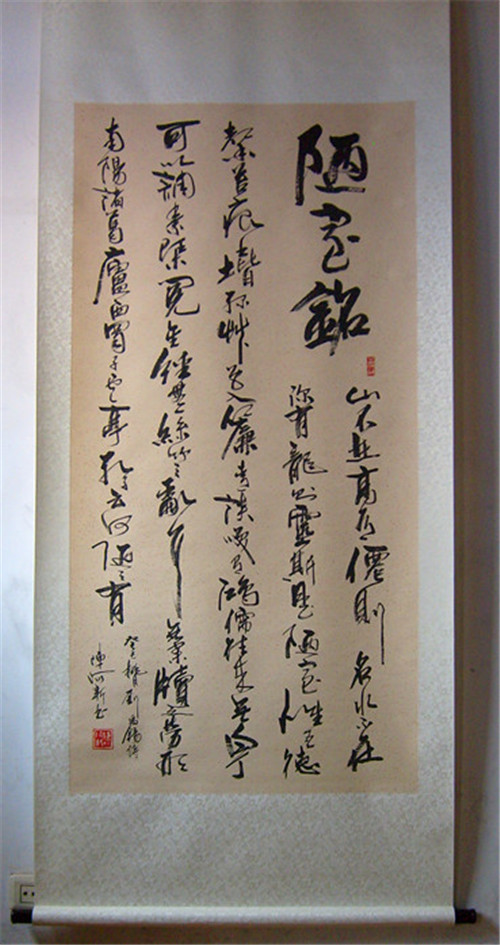 陋室銘
山不在高有僊則名水不在
深有龍則靈斯是陋室惟吾德
馨苔痕堦綠艸色入簾青談嘆有鴻儒往來無白丁
可以調素琴閱金經無絲竹之亂耳無案牘之勞形
南陽諸葛廬西蜀子雲亭孔子云何陋之有
劉禹錫